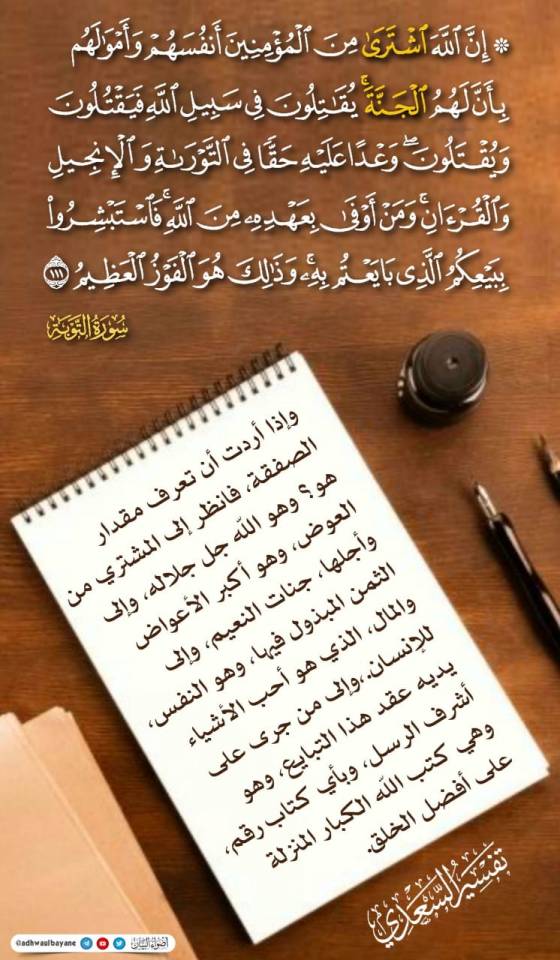 ۞ إِنَّ ٱللَّهَ ٱشْتَرَىٰ مِنَ ٱلْمُؤْمِنِينَ أَنفُسَهُمْ وَأَمْوَٰلَهُم
بِأَنَّ لَهُمُ ٱلْجَنَّةَ ۚ يُقَٰتِلُونَ فِى سَبِيلِ ٱللَّهِ فَيَقْتُلُونَ
وَيُقْتَلُونَ ۖ وَعْدًا عَلَيْهِ حَقًّا فِى ٱلتَّوْرَىٰةِ وَٱلْإِنجِيلِ
وَٱلْقُرْءَانِ ۚ وَمَنْ أَوْفَىٰ بِعَهْدِهِۦ مِنَ ٱللَّهِ ۚ فَٱسْتَبْشِرُوا۟
بِبَيْعِكُمُ ٱلَّذِى بَايَعْتُم بِهِۦ ۚ وَذَٰلِكَ هُوَ ٱلْفَوْزُ ٱلْعَظِيمُ ١١١
سُورَةُ التَّوْبَةِ
وإذا أردت أن تعرف مقدار
الصفقة، فانظر إلى المشتري من
هو؟ وهو الله جل جلاله، وإلى
العوض، وهو أكبر الأعواض
وأجلها، جنات النعيم، وإلى
الثمن المبذول فيها، وهو النفس،
والمال، الذي هو أحب الأشياء
للإنسان.،وإلى من جرى على
يديه عقد هذا التبايع، وهو
أشرف الرسل، وبأي كتاب رقم،
وهي كتب الله الكبار المنزلة
على أفضل الخلق.
تفسير السعدي
@adhwaulbayane
أضواء البيان